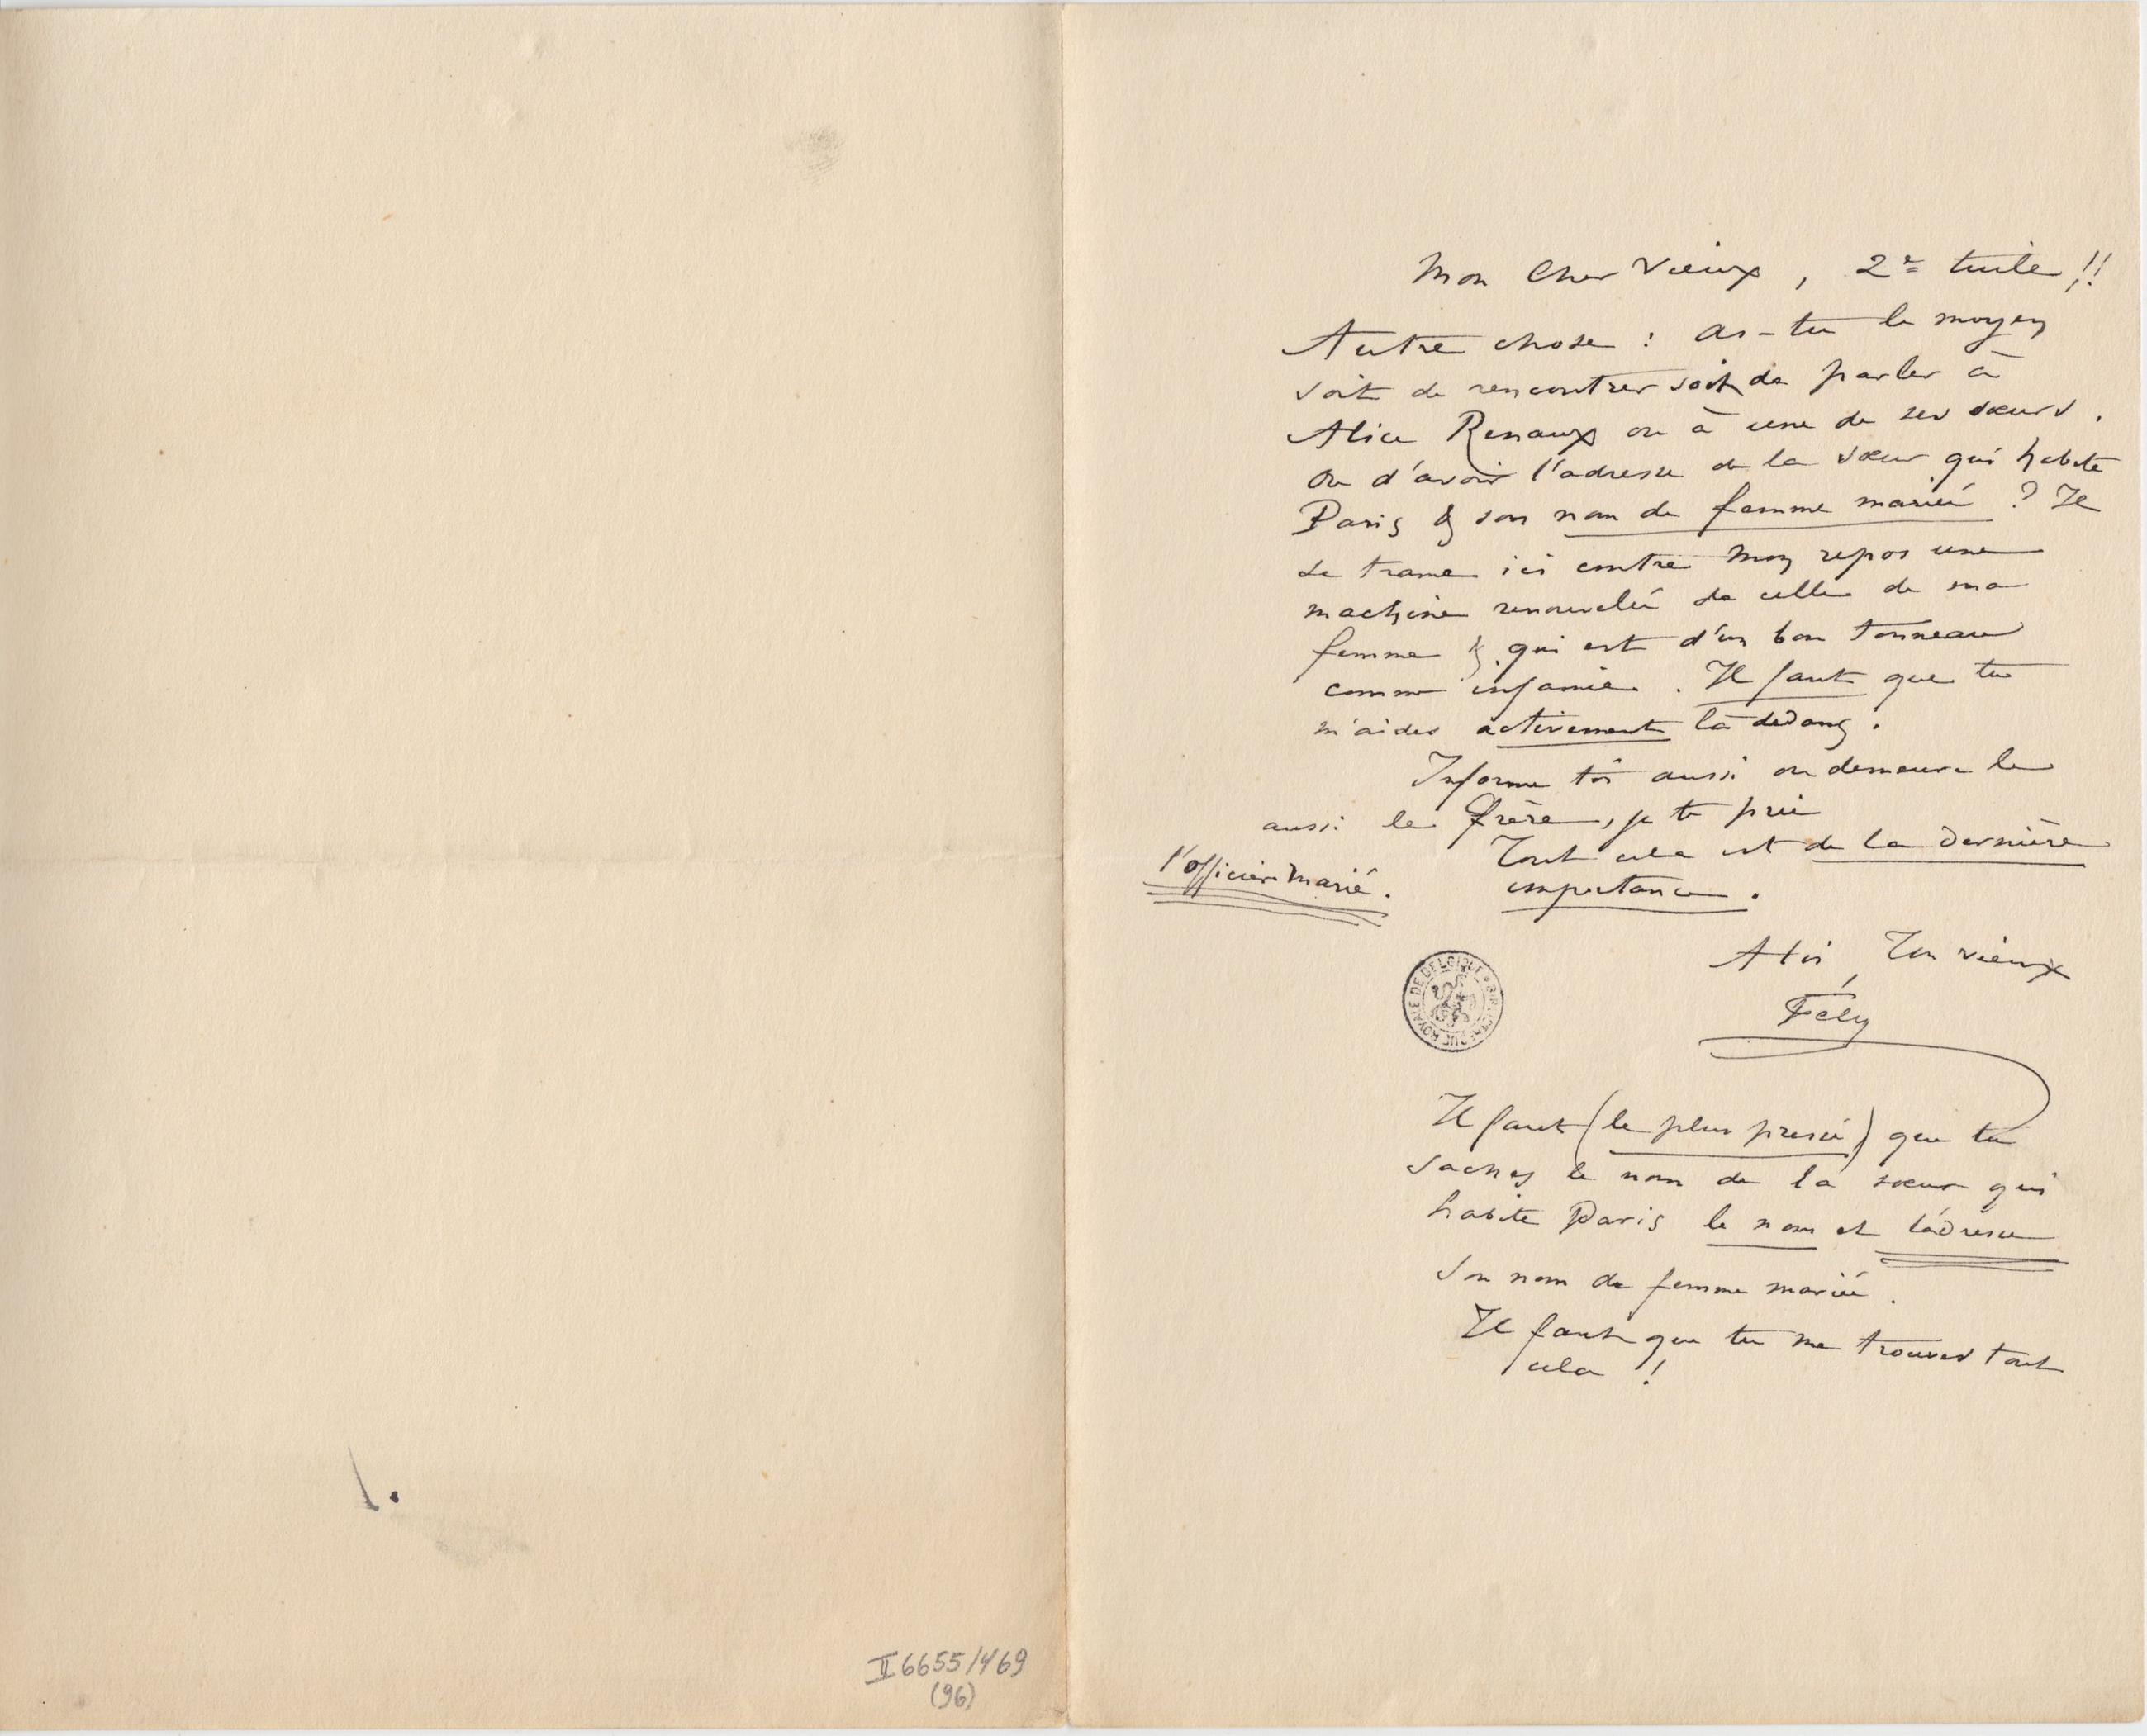 Mon Cher Vieux, 2e tuile !!
Autre chose : as-tu le moyen
soit de rencontrer soit de parler à
Alice Renaux ou à une de ses sœurs.
ou d'avoir l'adresse de la sœur qui habite
Paris & son nom de femme mariée ? Il
se trame ici contre mon repos une
machine renouvelée de celle de ma
femme & qui est d'un bon tonneau
comme infamie. Il faut que tu
m'aides activement là dedans.
Informe toi aussi ou demeure le
aussi le frère, je te prie
l'officier marié.
Tout cela est de la dernière
importance.
A toi, Ton vieux
Fély
BIBLIOTHEQUE ROYALE DE BELGIQUE
Il faut (le plus pressé) que tu
saches le nom de la sœur qui
habite Paris le nom et l'adresse
Son nom de femme mariée.
Il faut que tu me trouves tout
cela !
II 6655/469
(96)